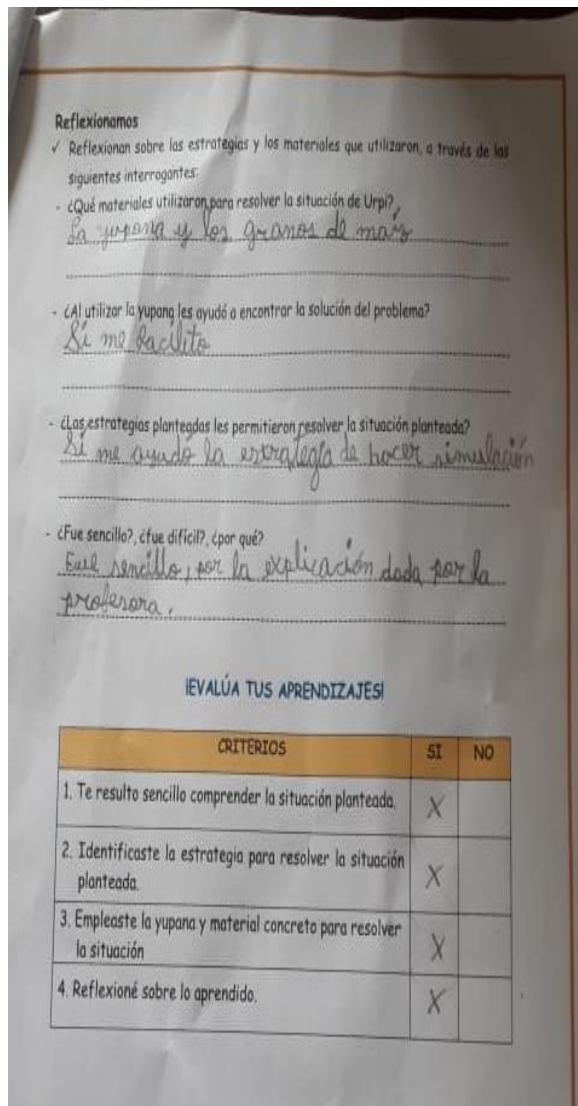 Reflexionamos
✓ Reflexionan sobre las estrategias y los materiales que utilizaron, a través de las
siguientes interrogantes:
- ¿Qué materiales utilizaron para resolver la situación de Urpi?
La yupana y los granos de maiz
- ¿Al utilizar la yupana les ayudó a encontrar la solución del problema?
Si me facilito
- ¿Las estrategias planteadas les permitieron resolver la situación planteada?
Si me ayudo la estrategía de hacer simulación
- ¿Fue sencillo?, ¿fue difícil?, ¿por qué?
Fue sencillo, por la explicación dada por la
profesora.
¡EVALÚA TUS APRENDIZAJES!
CRITERIOS SI NO
1. Te resulto sencillo comprender la situación planteada. X
2. Identificaste la estrategia para resolver la situación X
planteada.
3. Empleaste la yupana y material concreto para resolver X
la situación
4. Reflexioné sobre lo aprendido. X